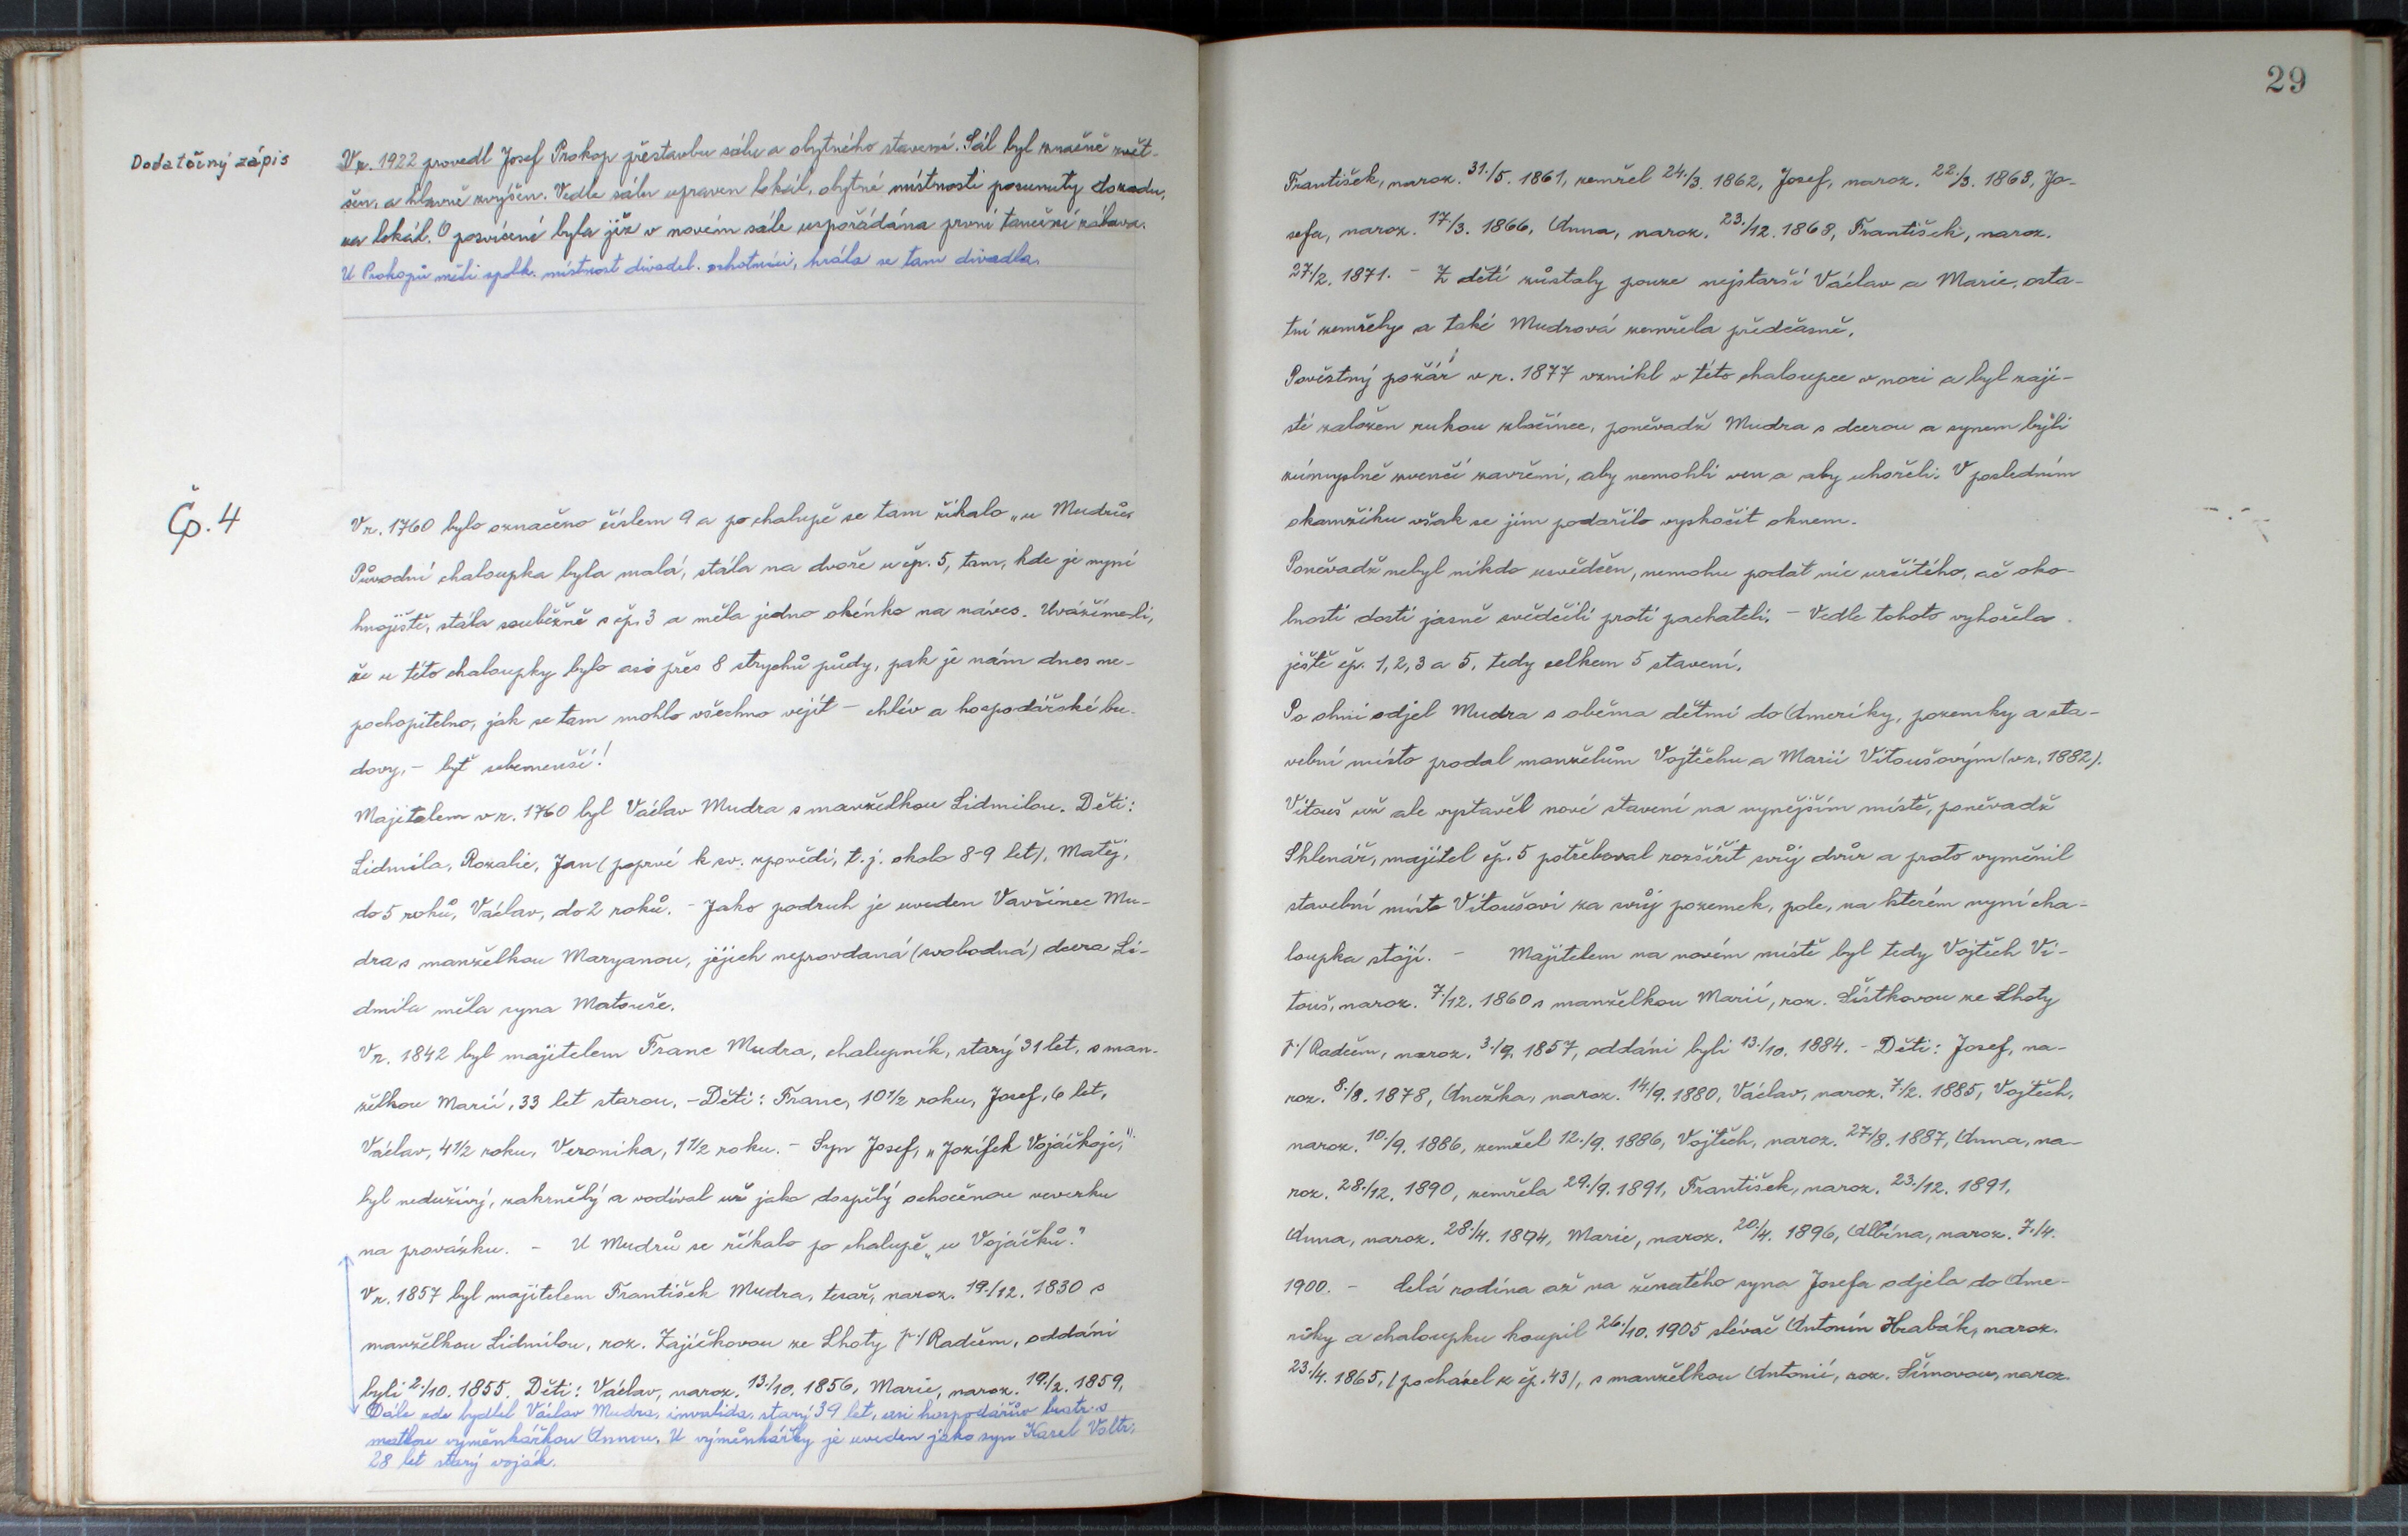 Dodatečný zápis
V r. 1922 provedl Josef Prokop přestavbu sálu a obytného stavení. Sál byl značně zvět-
šen, a hlavně zvýšen. Vedle sálu upraven lokál, obytné místnosti posunuty dozadu,
za lokál. O posvícení byla již v novém sále uspořádána první taneční zábava.
U Prokopů měli spolk. místnost divadel. ochotníci, hrála se tam divadla.
Čp. 4
V r. 1760 bylo označeno číslem 9 a po chalupě se tam říkalo „u Mudrů“.
Původní chaloupka byla malá, stála na dvoře u čp. 5, tam, kde je nyní
hnojiště, stála souběžně s čp. 3 a měla jedno okénko na náves. Uvážíme-li,
že u této chaloupky bylo asi přes 8 strychů půdy, pak je nám dnes ne-
pochopitelno, jak se tam mohlo všechno vejít – chlév a hospodářské bu-
dovy, – byť sebemenší!
Majitelem v r. 1760 byl Václav Mudra s manželkou Lidmilou. Děti:
Lidmila, Rozalie, Jan (poprvé k sv. zpovědi, t. j. okolo 8-9 let), Matěj,
do 5 roků, Václav, do 2 roků. – Jako podruh je uveden Vavřinec Mu-
dra s manželkou Maryanou, jejich neprovdaná (svobodná) dcera Li-
dmila měla syna Matouše.
V r. 1842 byl majitelem Franc Mudra, chalupník, starý 31 let, s man-
želkou Marií, 33 let starou, – Děti: Franc, 10 1/2 roku, Josef, 6 let,
Václav, 4 1/2 roku, Veronika, 1 1/2 roku. – Syn Josef, „Jozífek Vojáčkojc,“
byl neduživý, zakrnělý a vodíval už jako dospělý ochočenou veverku
na provázku. – U Mudrů se říkalo po chalupě „u Vojáčků.“
V r. 1857 byl majitelem František Mudra, tesař, naroz. 19./12. 1830 s
manželkou Lidmilou, roz. Zajíčkovou ze Lhoty p./Radčem, oddáni
byli 2./10. 1855. Děti: Václav, naroz. 13./10. 1856, Marie, naroz. 19./2. 1859,
Dále zde bydlel Václav Mudra, invalida, starý 39 let, asi hospodářův bratr s
matkou výměnkářkou Annou. U výměnkářky je uveden jako syn Karel Voltr,
28 let starý voják.
29
František, naroz. 31./5. 1861, zemřel 24./3. 1862, Josef, naroz. 22./3. 1863, Jo-
sefa, naroz. 17./3. 1866, Anna, naroz. 23./12. 1868, František, naroz.
27./2. 1871. – Z dětí zůstaly pouze nejstarší Václav a Marie, osta-
tní zemřely a také Mudrová zemřela předčasně.
Pověstný požár v r. 1877 vznikl v této chaloupce v noci a byl zaji-
sté založen rukou zločince, poněvadž Mudra s dcerou a synem byli
zúmyslně zvenčí zavřeni, aby nemohli ven a aby uhořeli. V posledním
okamžiku však se jim podařilo vyskočit oknem.
Poněvadž nebyl nikdo usvědčen, nemohu podat nic určitého, ač oko-
lnosti dosti jasně svědčili proti pachateli. – Vedle tohoto vyhořela
ještě čp. 1, 2, 3 a 5, tedy celkem 5 stavení.
Po ohni odjel Mudra s oběma dětmi do Ameriky, pozemky a sta-
vební místo prodal manželům Vojtěchu a Marii Vitoušovým (v r. 1882).
Vitouš už ale vystavěl nové stavení na nynějším místě, poněvadž
Sklenář, majitel čp. 5 potřeboval rozšířit svůj dvůr a proto vyměnil
stavební místo Vitoušovi za svůj pozemek, pole, na kterém nyní cha-
loupka stojí. – Majitelem na novém místě byl tedy Vojtěch Vi-
touš, naroz. 7./12. 1860 s manželkou Marií, roz. Lístkovou ze Lhoty
p./Radčem, naroz. 3./9. 1857, oddáni byli 13./10. 1884. – Děti: Josef, na-
roz. 8./8. 1878, Anežka, naroz. 14./9. 1880, Václav, naroz. 7./2. 1885, Vojtěch,
naroz. 10./9. 1886, zemřel 12./9. 1886, Vojtěch, naroz. 27./8. 1887, Anna, na-
roz. 28./12. 1890, zemřela 29./9. 1891, František, naroz. 23./12. 1891,
Anna, naroz. 28./4. 1894, Marie, naroz. 20./4. 1896, Albína, naroz. 7./4.
1900. – Celá rodina až na ženatého syna Josefa odjela do Ame-
riky a chaloupku koupil 26./10. 1905 slévač Antonín Hrabák, naroz.
23./4. 1865, (pocházel z čp. 43), s manželkou Antonií, roz. Šímovou, naroz.